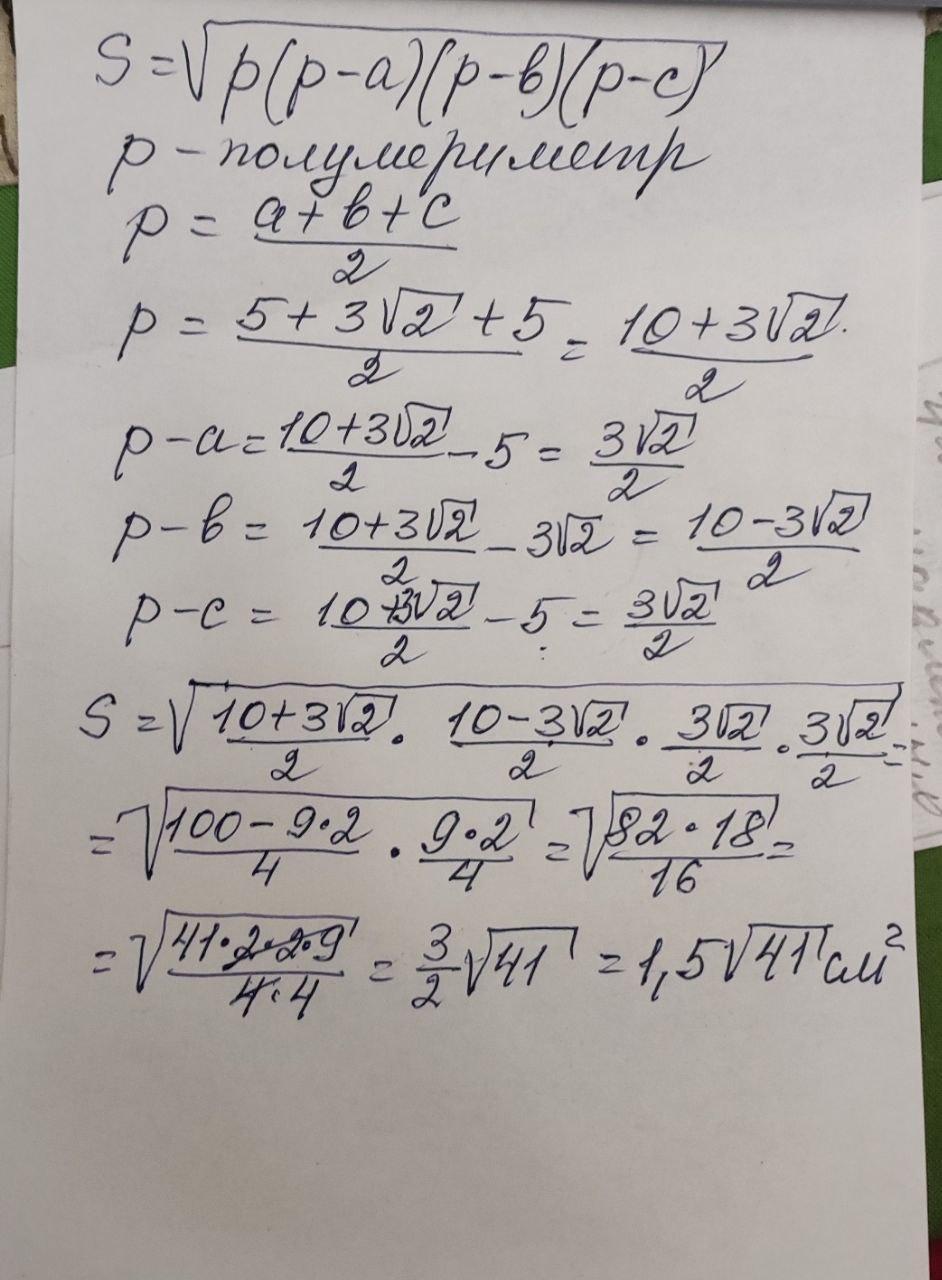 S = √(p(p-a)(p-в)(p-c))
p - полумериметр
p = (a+в+c)/2
p = (5+3√2+5)/2 = (10+3√2)/2.
p-a = (10+3√2)/2 - 5 = 3√2/2
p-в = (10+3√2)/2 - 3√2 = (10-3√2)/2
p-c = (10+3√2)/2 - 5 = 3√2/2
S = √((10+3√2)/2 · (10-3√2)/2 · 3√2/2 · 3√2/2) =
= √((100-9·2)/4 · (9·2)/4) = √((82·18)/16) =
= √((41·2·2·9)/(4·4)) = 3/2 √41 = 1,5√41 см²